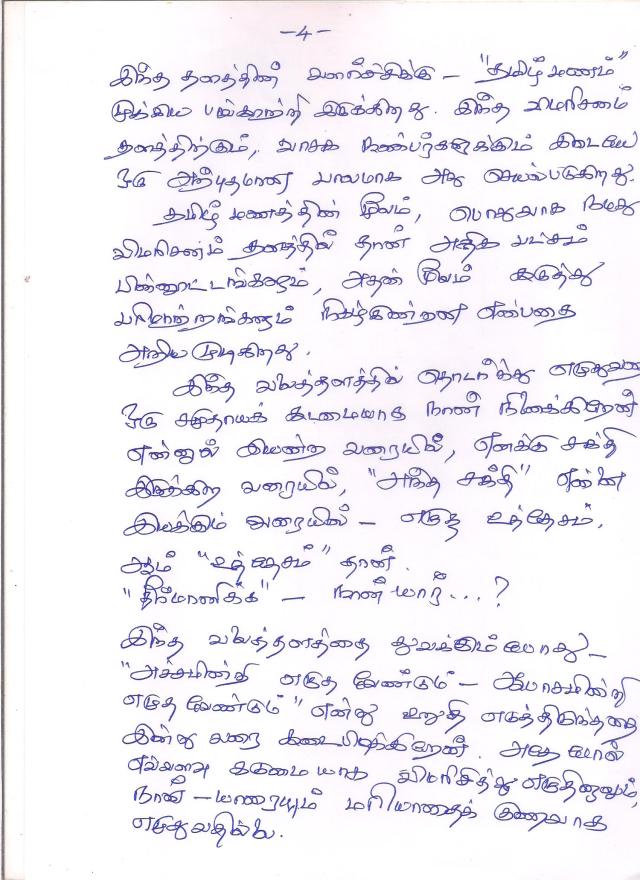 -4-
இந்த தளத்தின் வளர்ச்சிக்கு - "தமிழ் மணம்"
முக்கிய பங்காற்றி இருக்கிறது. இந்த விமரிசனம்
தளத்திற்கும், வாசக நண்பர்களுக்கும் இடையே
ஒரு அற்புதமான பாலமாக அது செயல்படுகிறது.
தமிழ் மணத்தின் மூலம், பொதுவாக நமது
விமரிசனம் தளத்தில் தான் அதிக பட்சம்
பின்னூட்டங்களும், அதன் மூலம் கருத்து
பரிமாற்றங்களும் நிகழ்கின்றன என்பதை
அறிய முடிகிறது.
இந்த வலைத்தளத்தில் தொடர்ந்து எழுதுவதை
ஒரு சமுதாயக் கடமையாக நான் நினைக்கிறேன்
என்னால் இயன்ற வரையில், எனக்கு சக்தி
இருக்கிற வரையில், "அந்த சக்தி" என்னை
இயக்கும் வரையில் - எழுத உத்தேசம்.
ஆம் "உத்தேசம்" தான்.
"தீர்மானிக்க" - நான் யார்...?
இந்த வலைத்தளத்தை துவக்கும்போது -
"அச்சமின்றி எழுத வேண்டும் - ஆபாசமின்றி
எழுத வேண்டும்" என்று உறுதி எடுத்திருந்ததை
இன்று வரை கடைபிடிக்கிறேன். அதே போல்
எவ்வளவு கடுமையாக விமரிசித்து எழுதினாலும்,
நான் - யாரையும் மரியாதைக் குறைவாக
எழுதுவதில்லை.